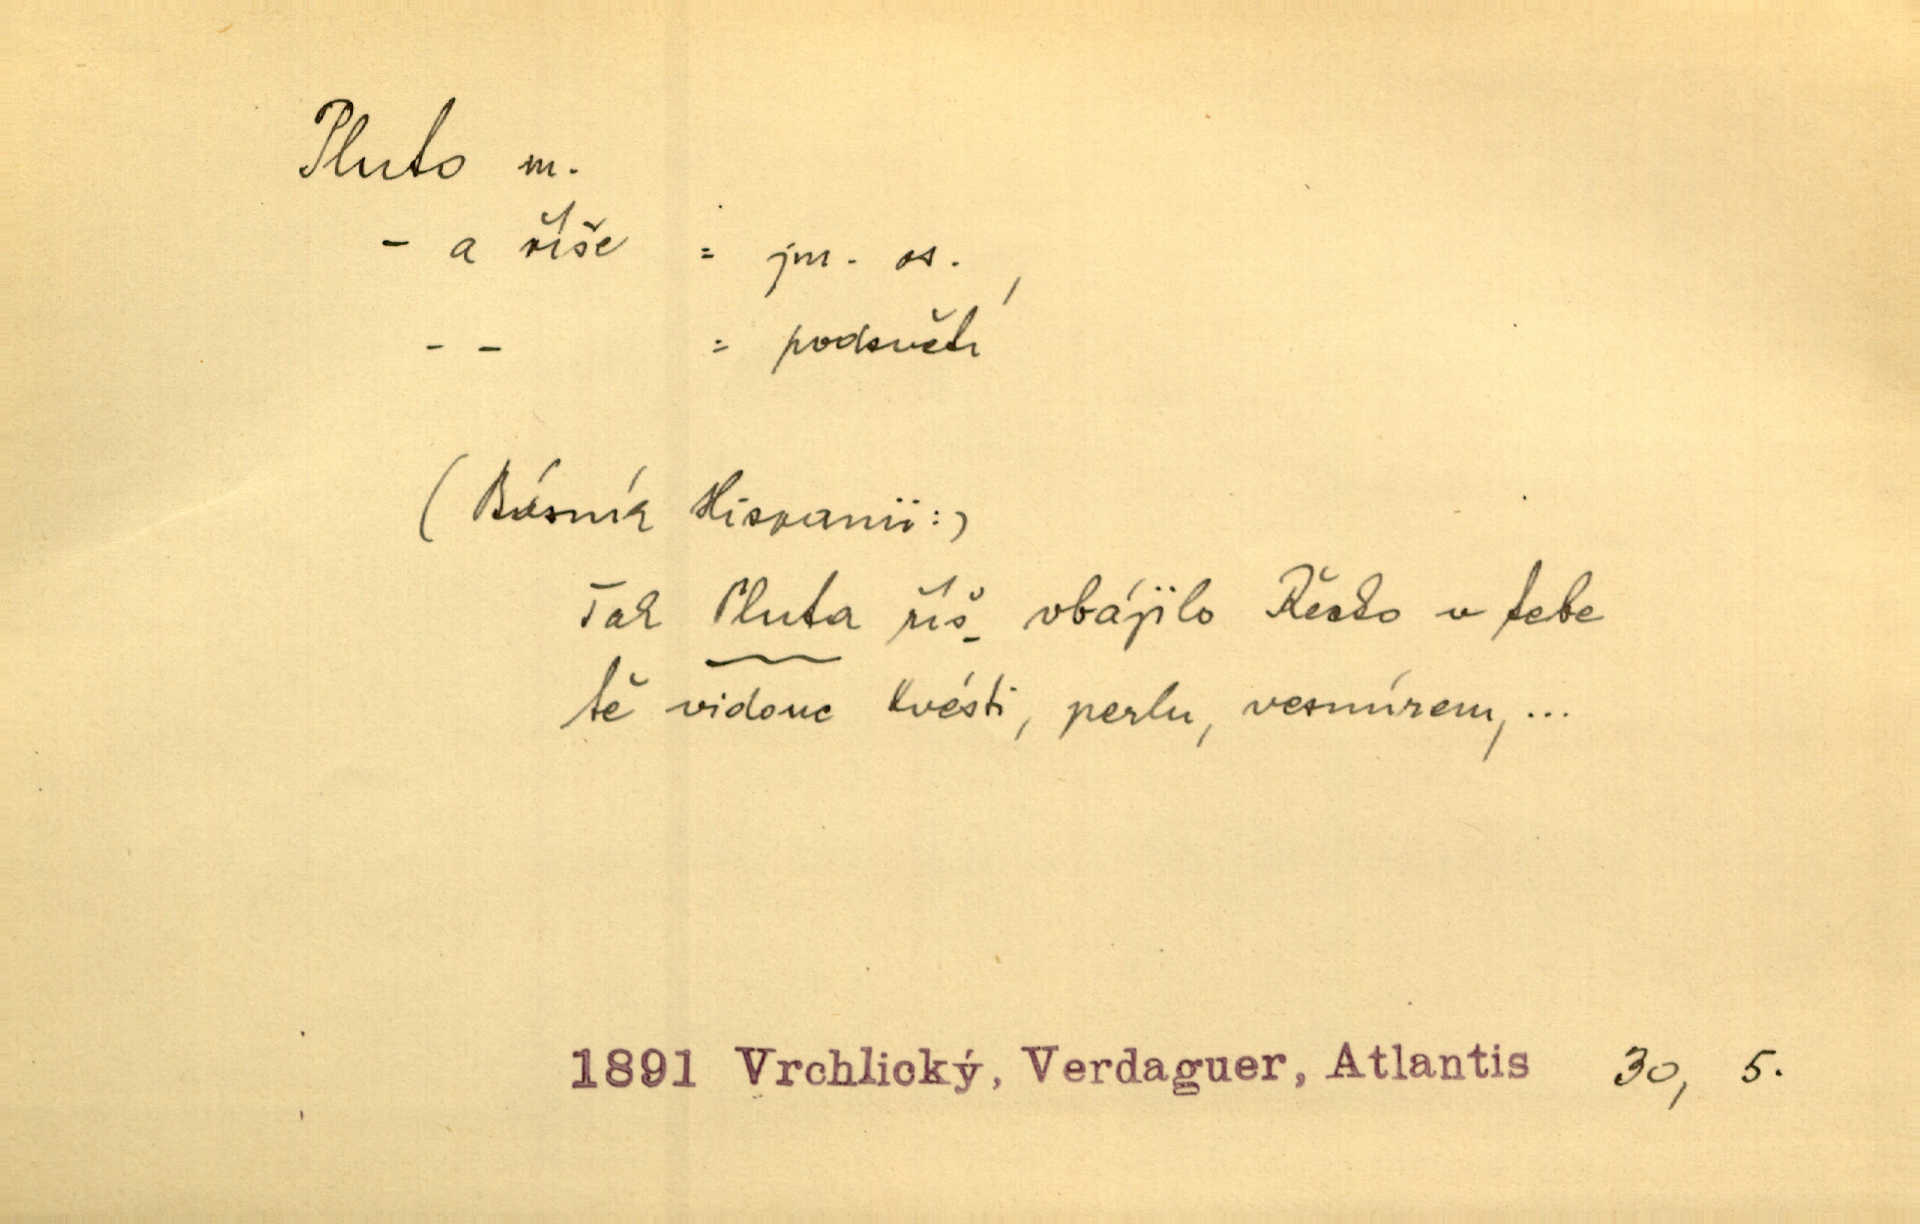 Pluto m.
- a říše = jm. os.,
- - = podsvětí
(Básník Hispanii:)
Tak Pluta říš vbájilo Řecko v tebe
tě vidouc kvésti, perlu, vesmírem, ...
1891 Vrchlický, Verdaguer, Atlantis 30, 5.